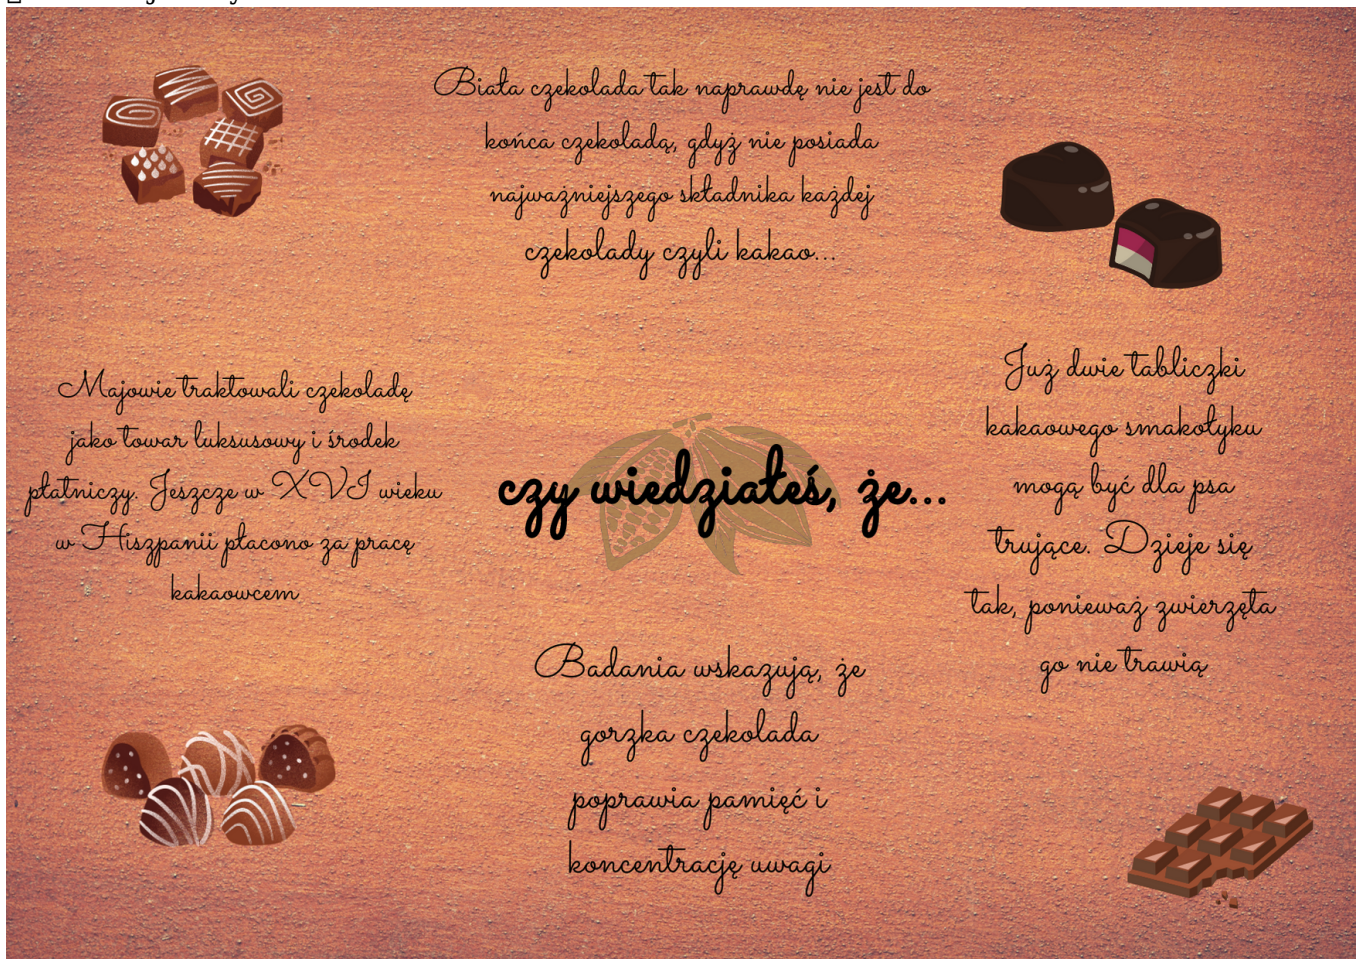 Biała czekolada tak naprawdę nie jest do
końca czekoladą, gdyż nie posiada
najważniejszego składnika każdej
czekolady czyli kakao...
Majowie traktowali czekoladę
jako towar luksusowy i środek
płatniczy. Jeszcze w XVI wieku
w Hiszpanii płacono za pracę
kakaowcem
czy wiedziałeś, że...
Już dwie tabliczki
kakaowego smakołyku
mogą być dla psa
trujące. Dzieje się
tak, ponieważ zwierzęta
go nie trawią
Badania wskazują, że
gorzka czekolada
poprawia pamięć i
koncentrację uwagi